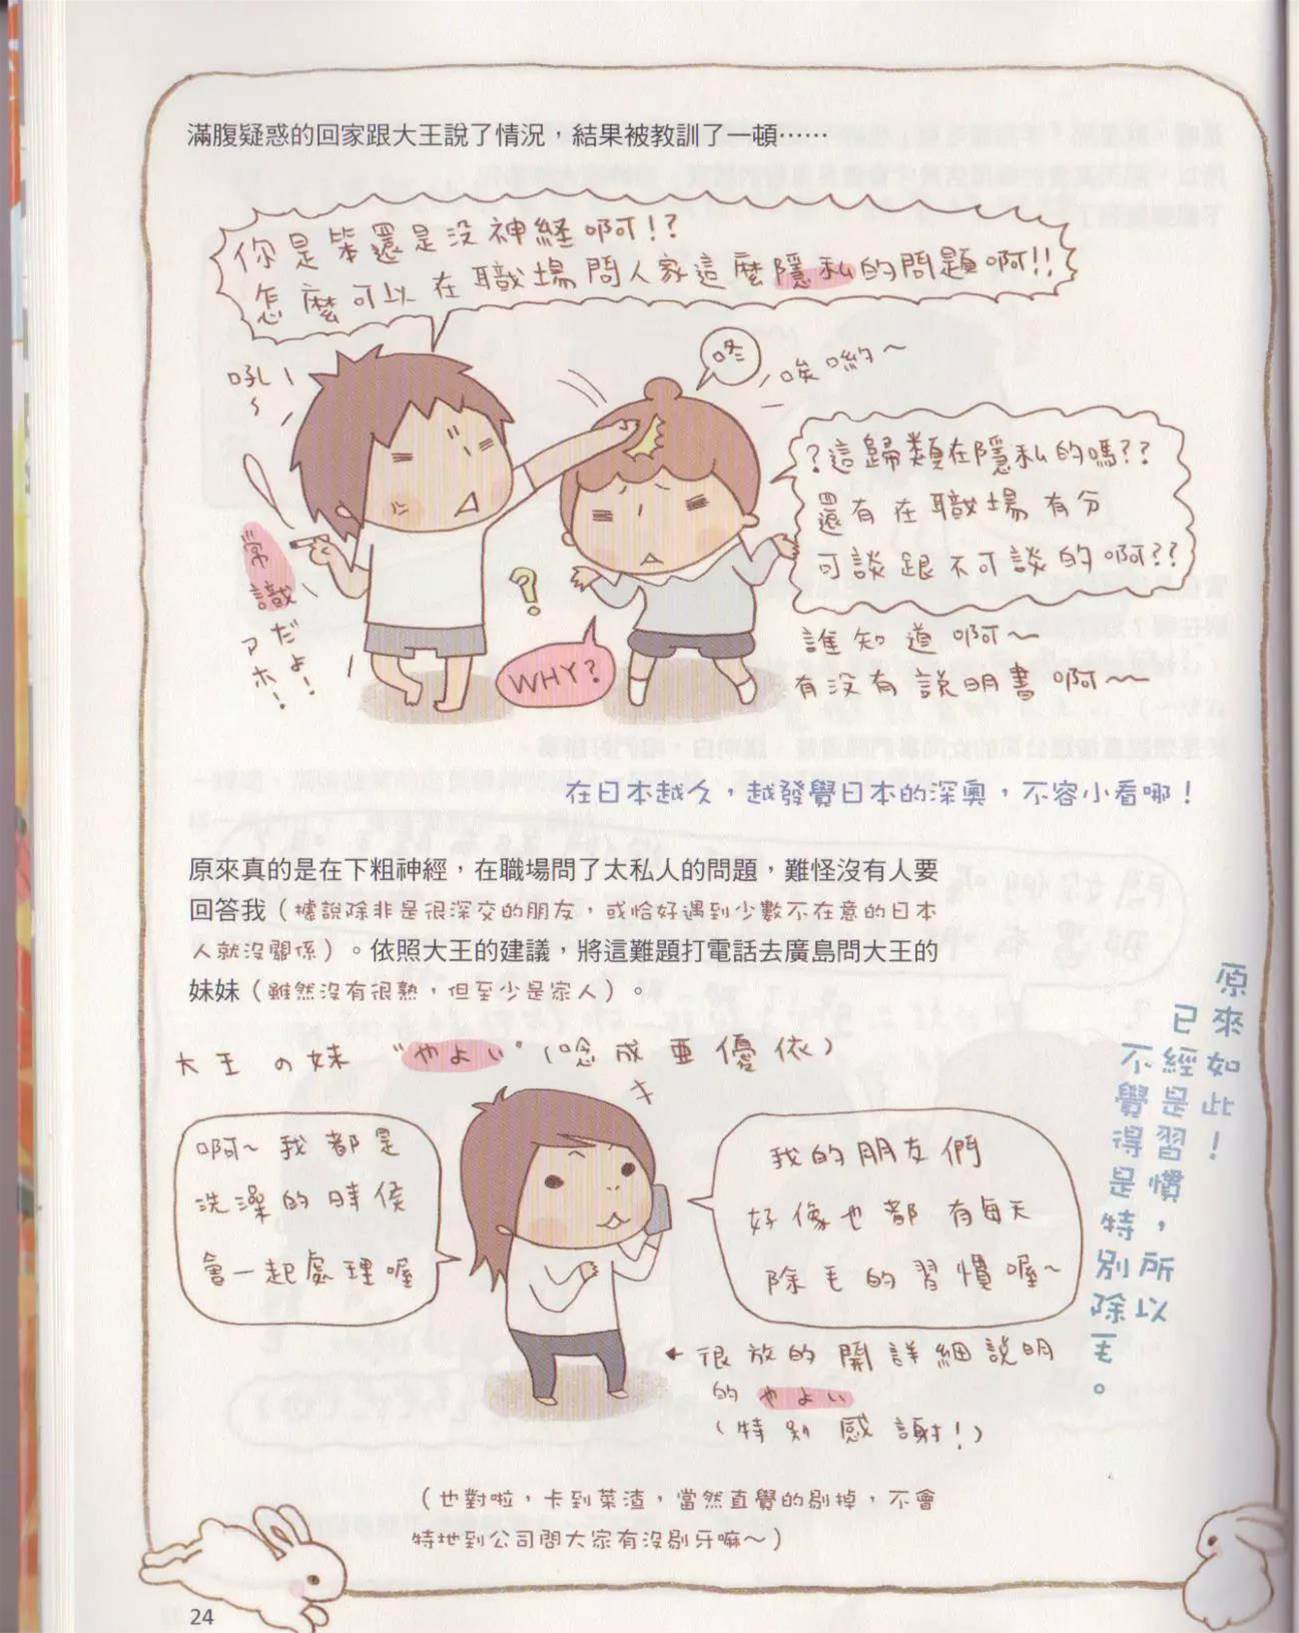 滿腹疑惑的回家跟大王說了情況，結果被教訓了一頓……
你是笨還是没神経啊!?
怎麼可以在職場問人家這麼隱私的問題啊!!
吼~
咚
唉喲~
?這歸類在隱私的嗎??
還有在職場有分
可談跟不可談的啊??
常識だよ!
アホ!
?
WHY?
誰知道啊~
有沒有説明書啊~~
在日本越久，越發覺日本的深奧，不容小看哪！
原來真的是在下粗神經，在職場問了太私人的問題，難怪沒有人要
回答我（據說除非是很深交的朋友，或恰好遇到少數不在意的日本
人就沒關係）。依照大王的建議，將這難題打電話去廣島問大王的
妹妹（雖然沒有很熟，但至少是家人）。
大王の妹 "やよい"(唸成亜優依)
啊~我都是
洗澡的時侯
會一起處理喔
我的朋友們
好像也都有每天
除毛的習慣喔~
很放的開詳細説明
的やよい
(特別感謝!)
原來如此！
已經是習慣，所以
不覺得是特別除毛。
（也對啦，卡到菜渣，當然直覺的剔掉，不會
特地到公司問大家有沒剔牙嘛~）
24